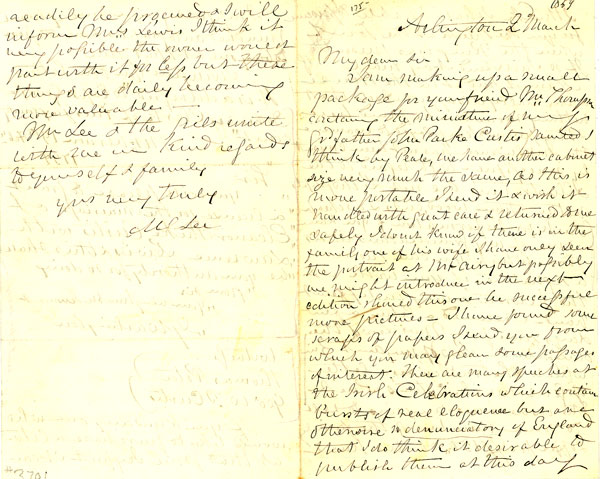 175
1859
Arlington 2d March
My dear Sir
I am making up a small
package for your friend Mr Thompson
containing the miniature of my
Gd father John Parke Custis painted I
think by Peale, we have another cabinet
size very much the same, as this is
more portable I send it & wish it
handled with great care & returned to me
safely I do not know if there is in the
family one of his wife I have only seen
the portrait at Mt Airy but possibly
we might introduce in the next
edition should this one be successful
more pictures — I have found some
scraps of papers I send you from
which you may glean some passages
of interest. There are many speeches at
the Irish Celebrations which contain
bursts of real eloquence but are
otherwise so denunciatory of England
that I do think it desirable to
publish them at this day
readily be procured & I will
inform Mrs Lewis I think it
very possible the owner would
part with it for less but these
things are daily becoming
more valuable —
Mr Lee & the girls unite
with me in kind regards
to yourself & family
yrs very truly
M C Lee
#3701